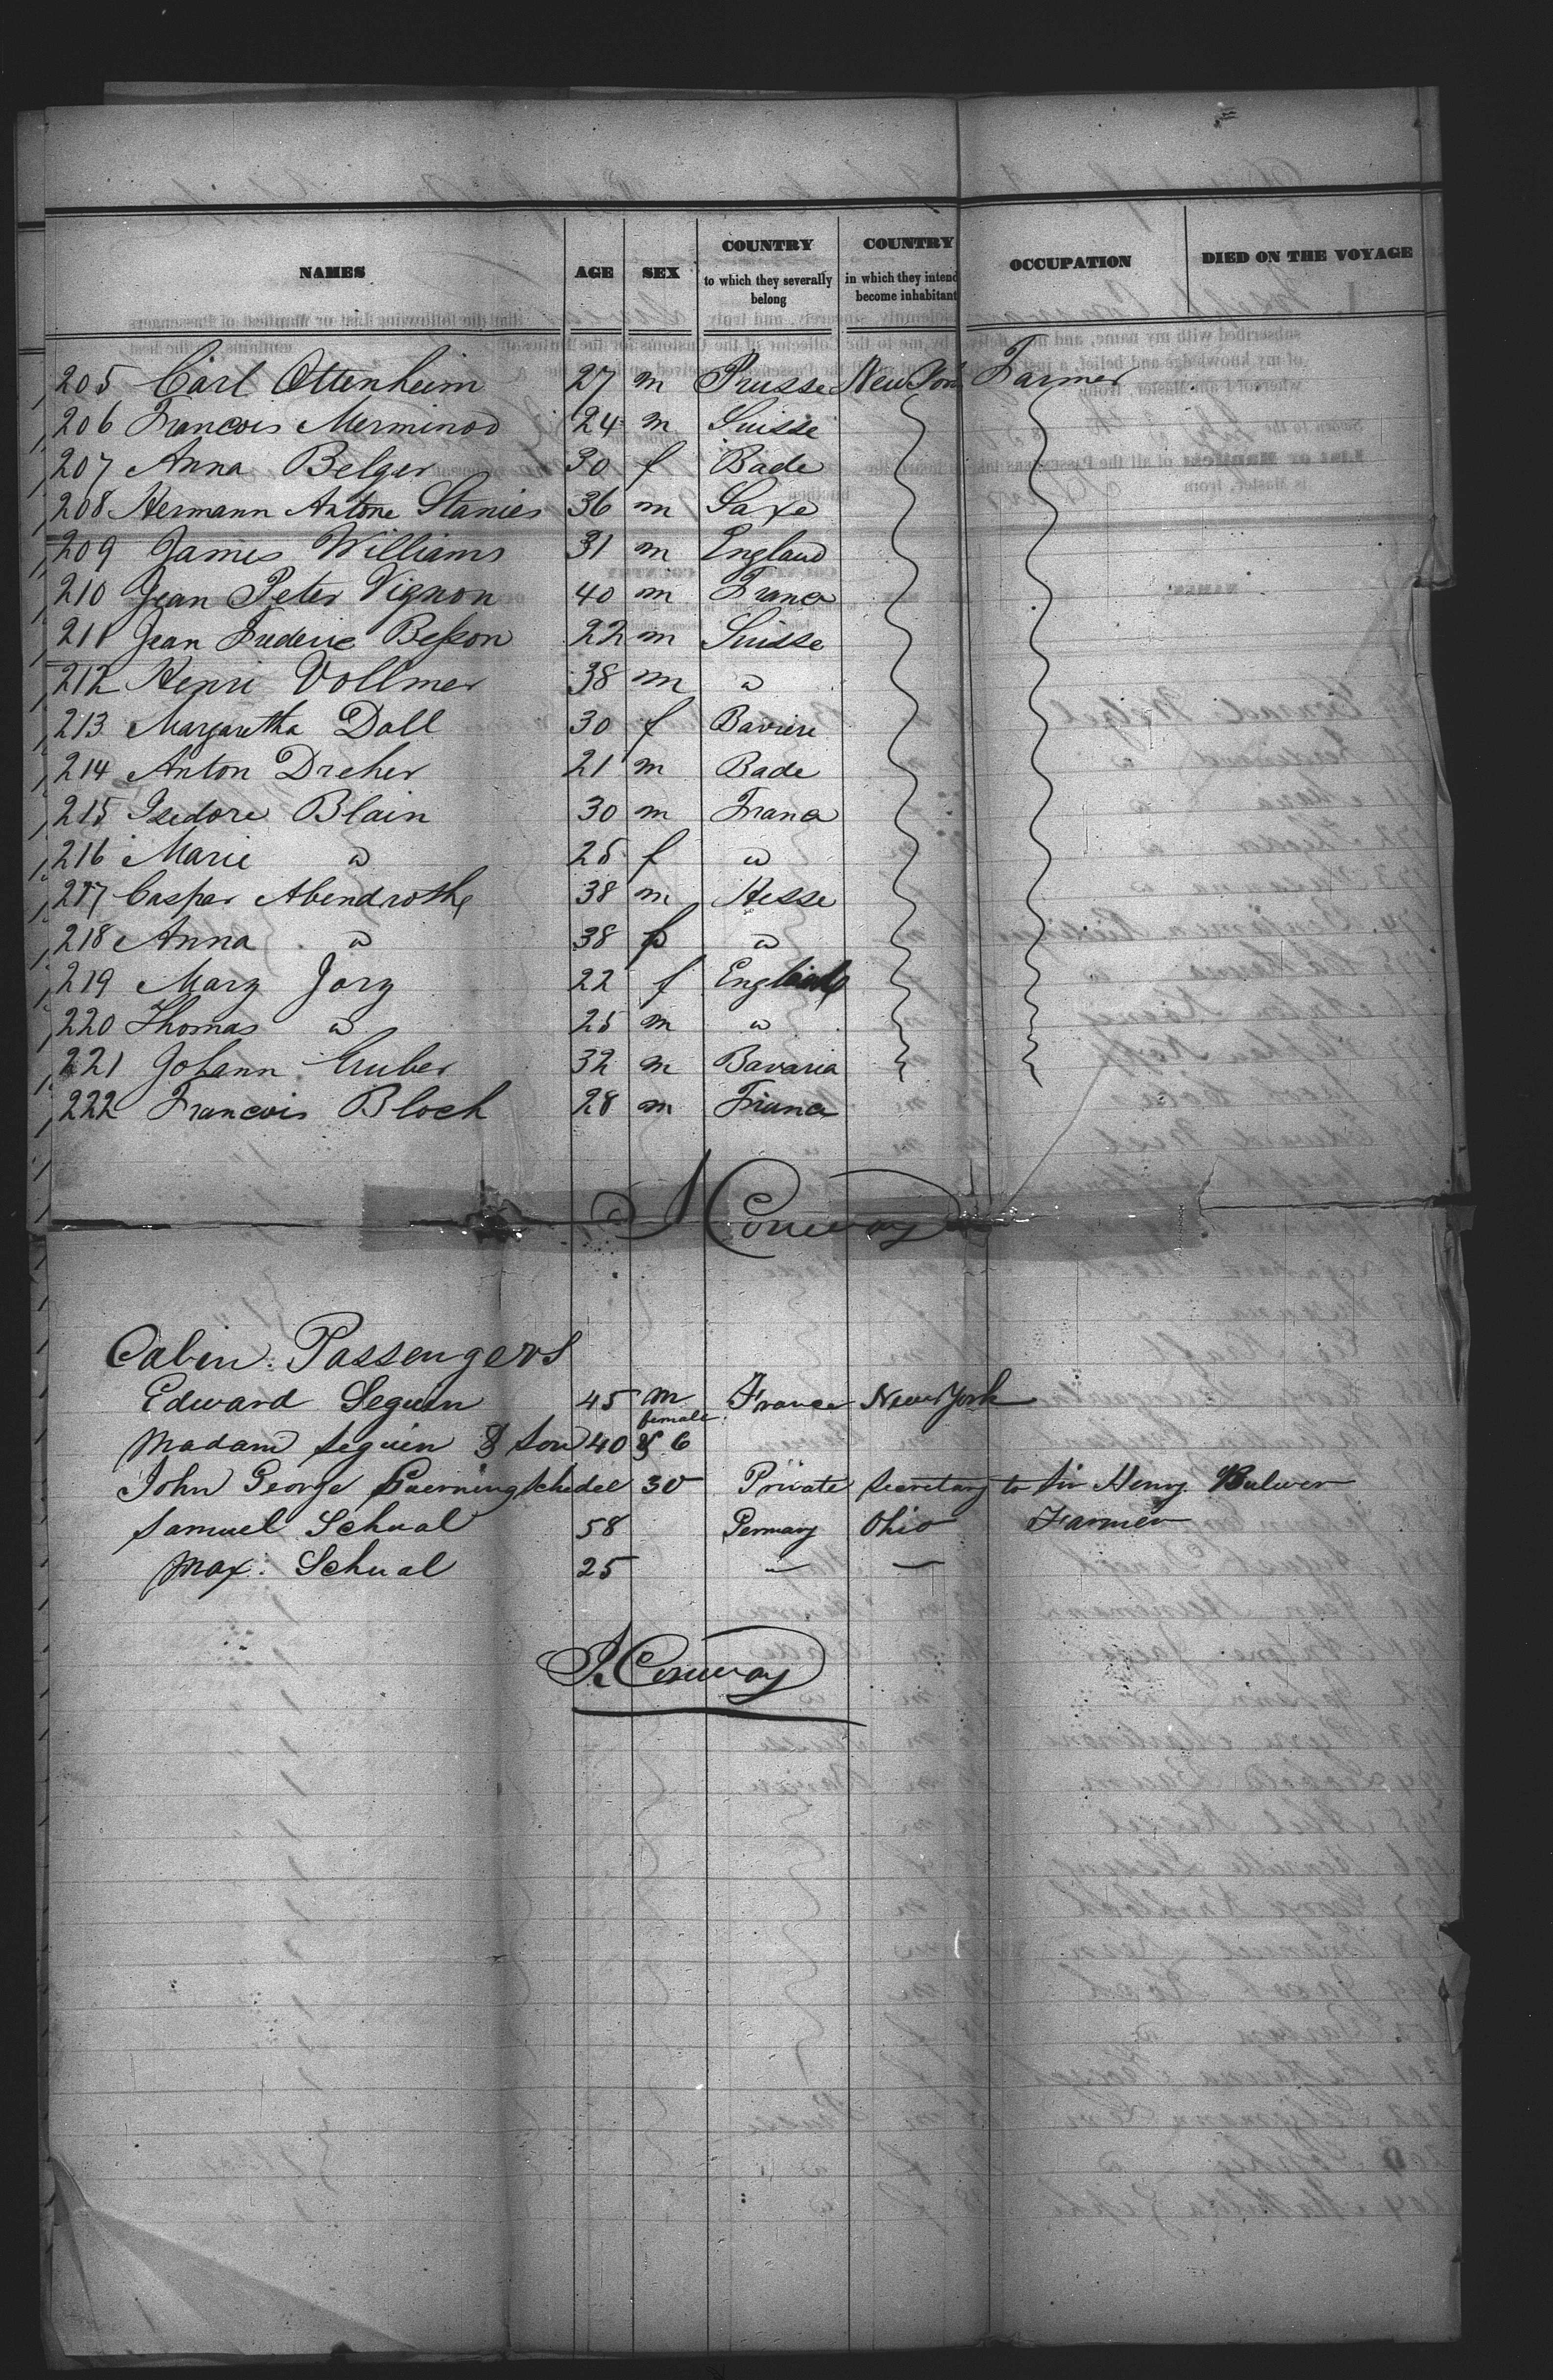 NAMES AGE SEX COUNTRY to which they severally belong COUNTRY in which they intend become inhabitant OCCUPATION DIED ON THE VOYAGE
205 Carl Ottenheim 27 m Prusse New York Farmer
206 Francois Merminod 24 m Suisse
207 Anna Belger 30 f Bade
208 Hermann Antone Stanies 36 m Saxe
209 James Williams 31 m England
210 Jean Peter Vignon 40 m France
211 Jean Frederic Besson 22 m Suisse
212 Henri Vollmer 38 m "
213 Margaretha Doll 30 f Baviere
214 Anton Dreher 21 m Bade
215 Isedore Blain 30 m France
216 Marie " 25 f "
217 Caspar Abendrothe 38 m Hesse
218 Anna " 38 f "
219 Mary Jory 22 f England
220 Thomas " 25 m "
221 Johann Gruber 32 m Bavaria
222 Francois Bloch 28 m France
Conway
Cabin Passengers
Edward Seguin 45 m France New York
female
Madam Seguin & Son 40 & 6
John George 30 Private Secretary to Sir Henry Bulwer
Samuel Schual 58 Germany Ohio Farmer
Max. Schual 25 — —
Conway